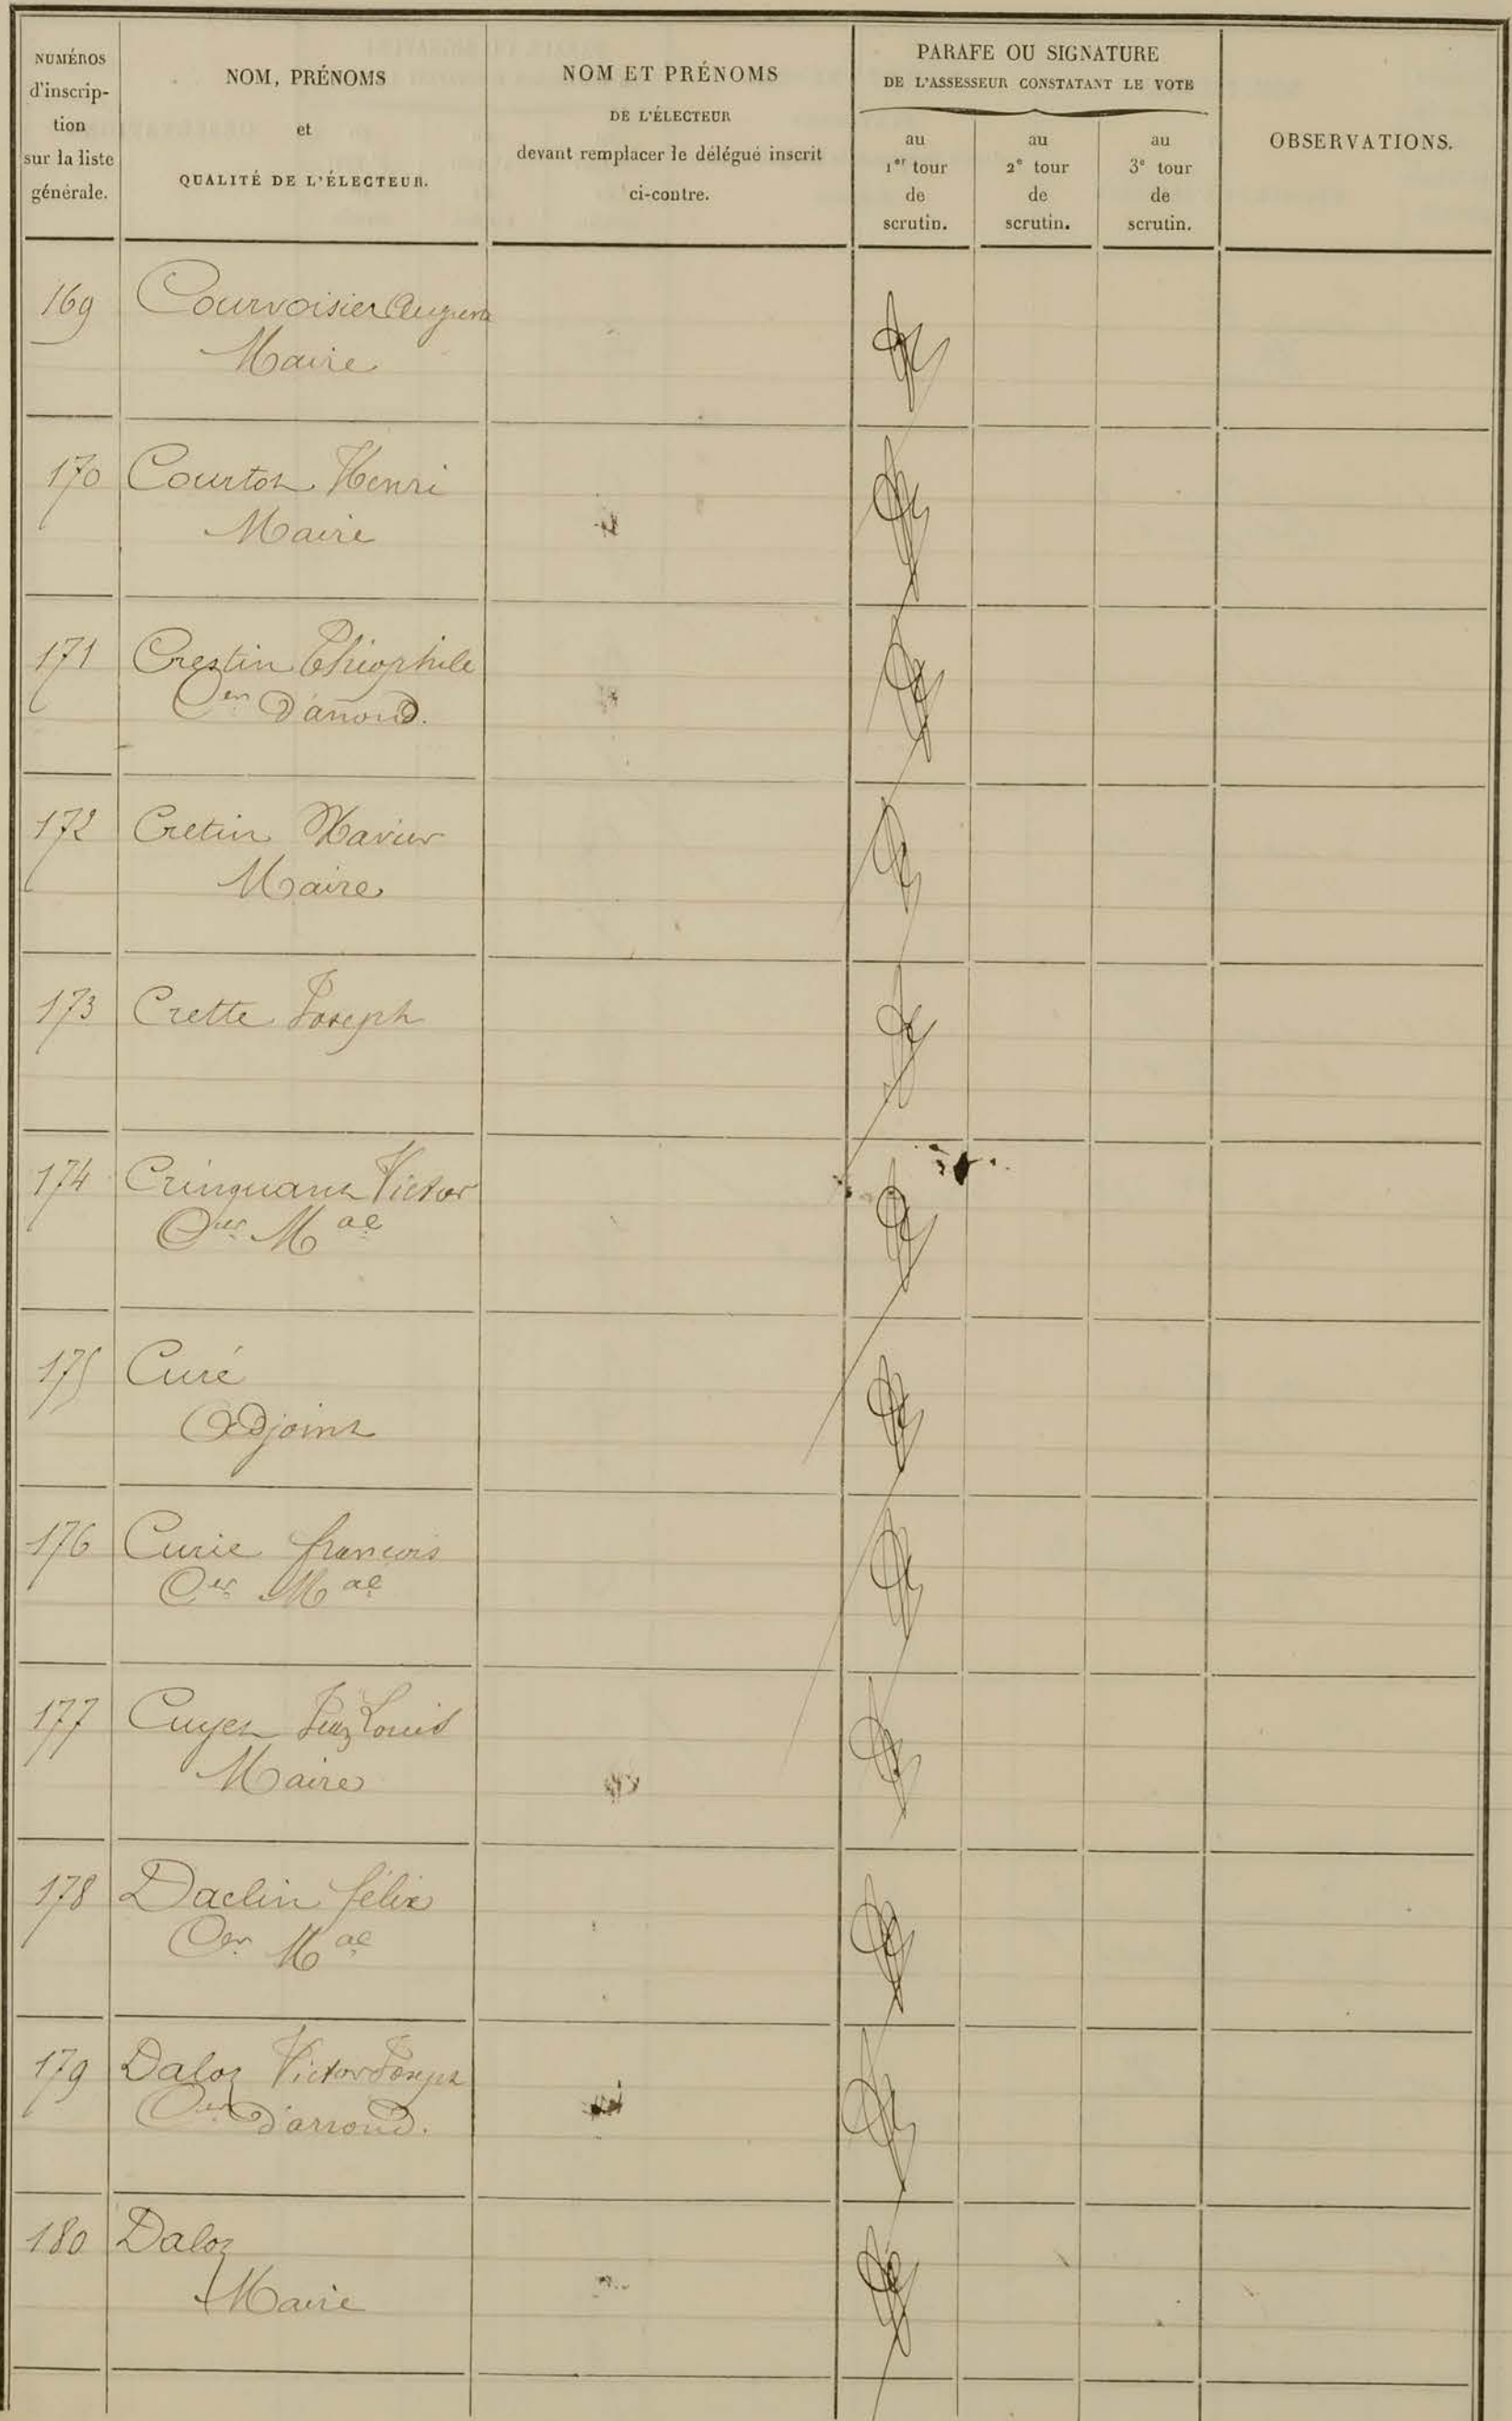 NUMÉROS
d'inscrip-
tion
sur la liste
générale.
NOM, PRÉNOMS
et
QUALITÉ DE L'ÉLECTEUR.
NOM ET PRÉNOMS
DE L'ÉLECTEUR
devant remplacer le délégué inscrit
ci-contre.
PARAFE OU SIGNATURE
DE L'ASSESSEUR CONSTATANT LE VOTE
au
1er tour
de
scrutin.
au
2e tour
de
scrutin.
au
3e tour
de
scrutin.
OBSERVATIONS.
169 Courvoisier
Maire
170 Courtot Henri
Maire
171 Crestin Théophile
Cer d'arrond.
172 Cretin Xavier
Maire
173 Crette Joseph
174 Cringuant Victor
Cer Mal
175 Curé
Adjoint
176 Curie françois
Cer Mal
177 Cuyet Louis
Maire
178 Daclin félix
Cer Mal
179 Daloz Victor Joseph
Cer d'arrond.
180 Daloz
Maire